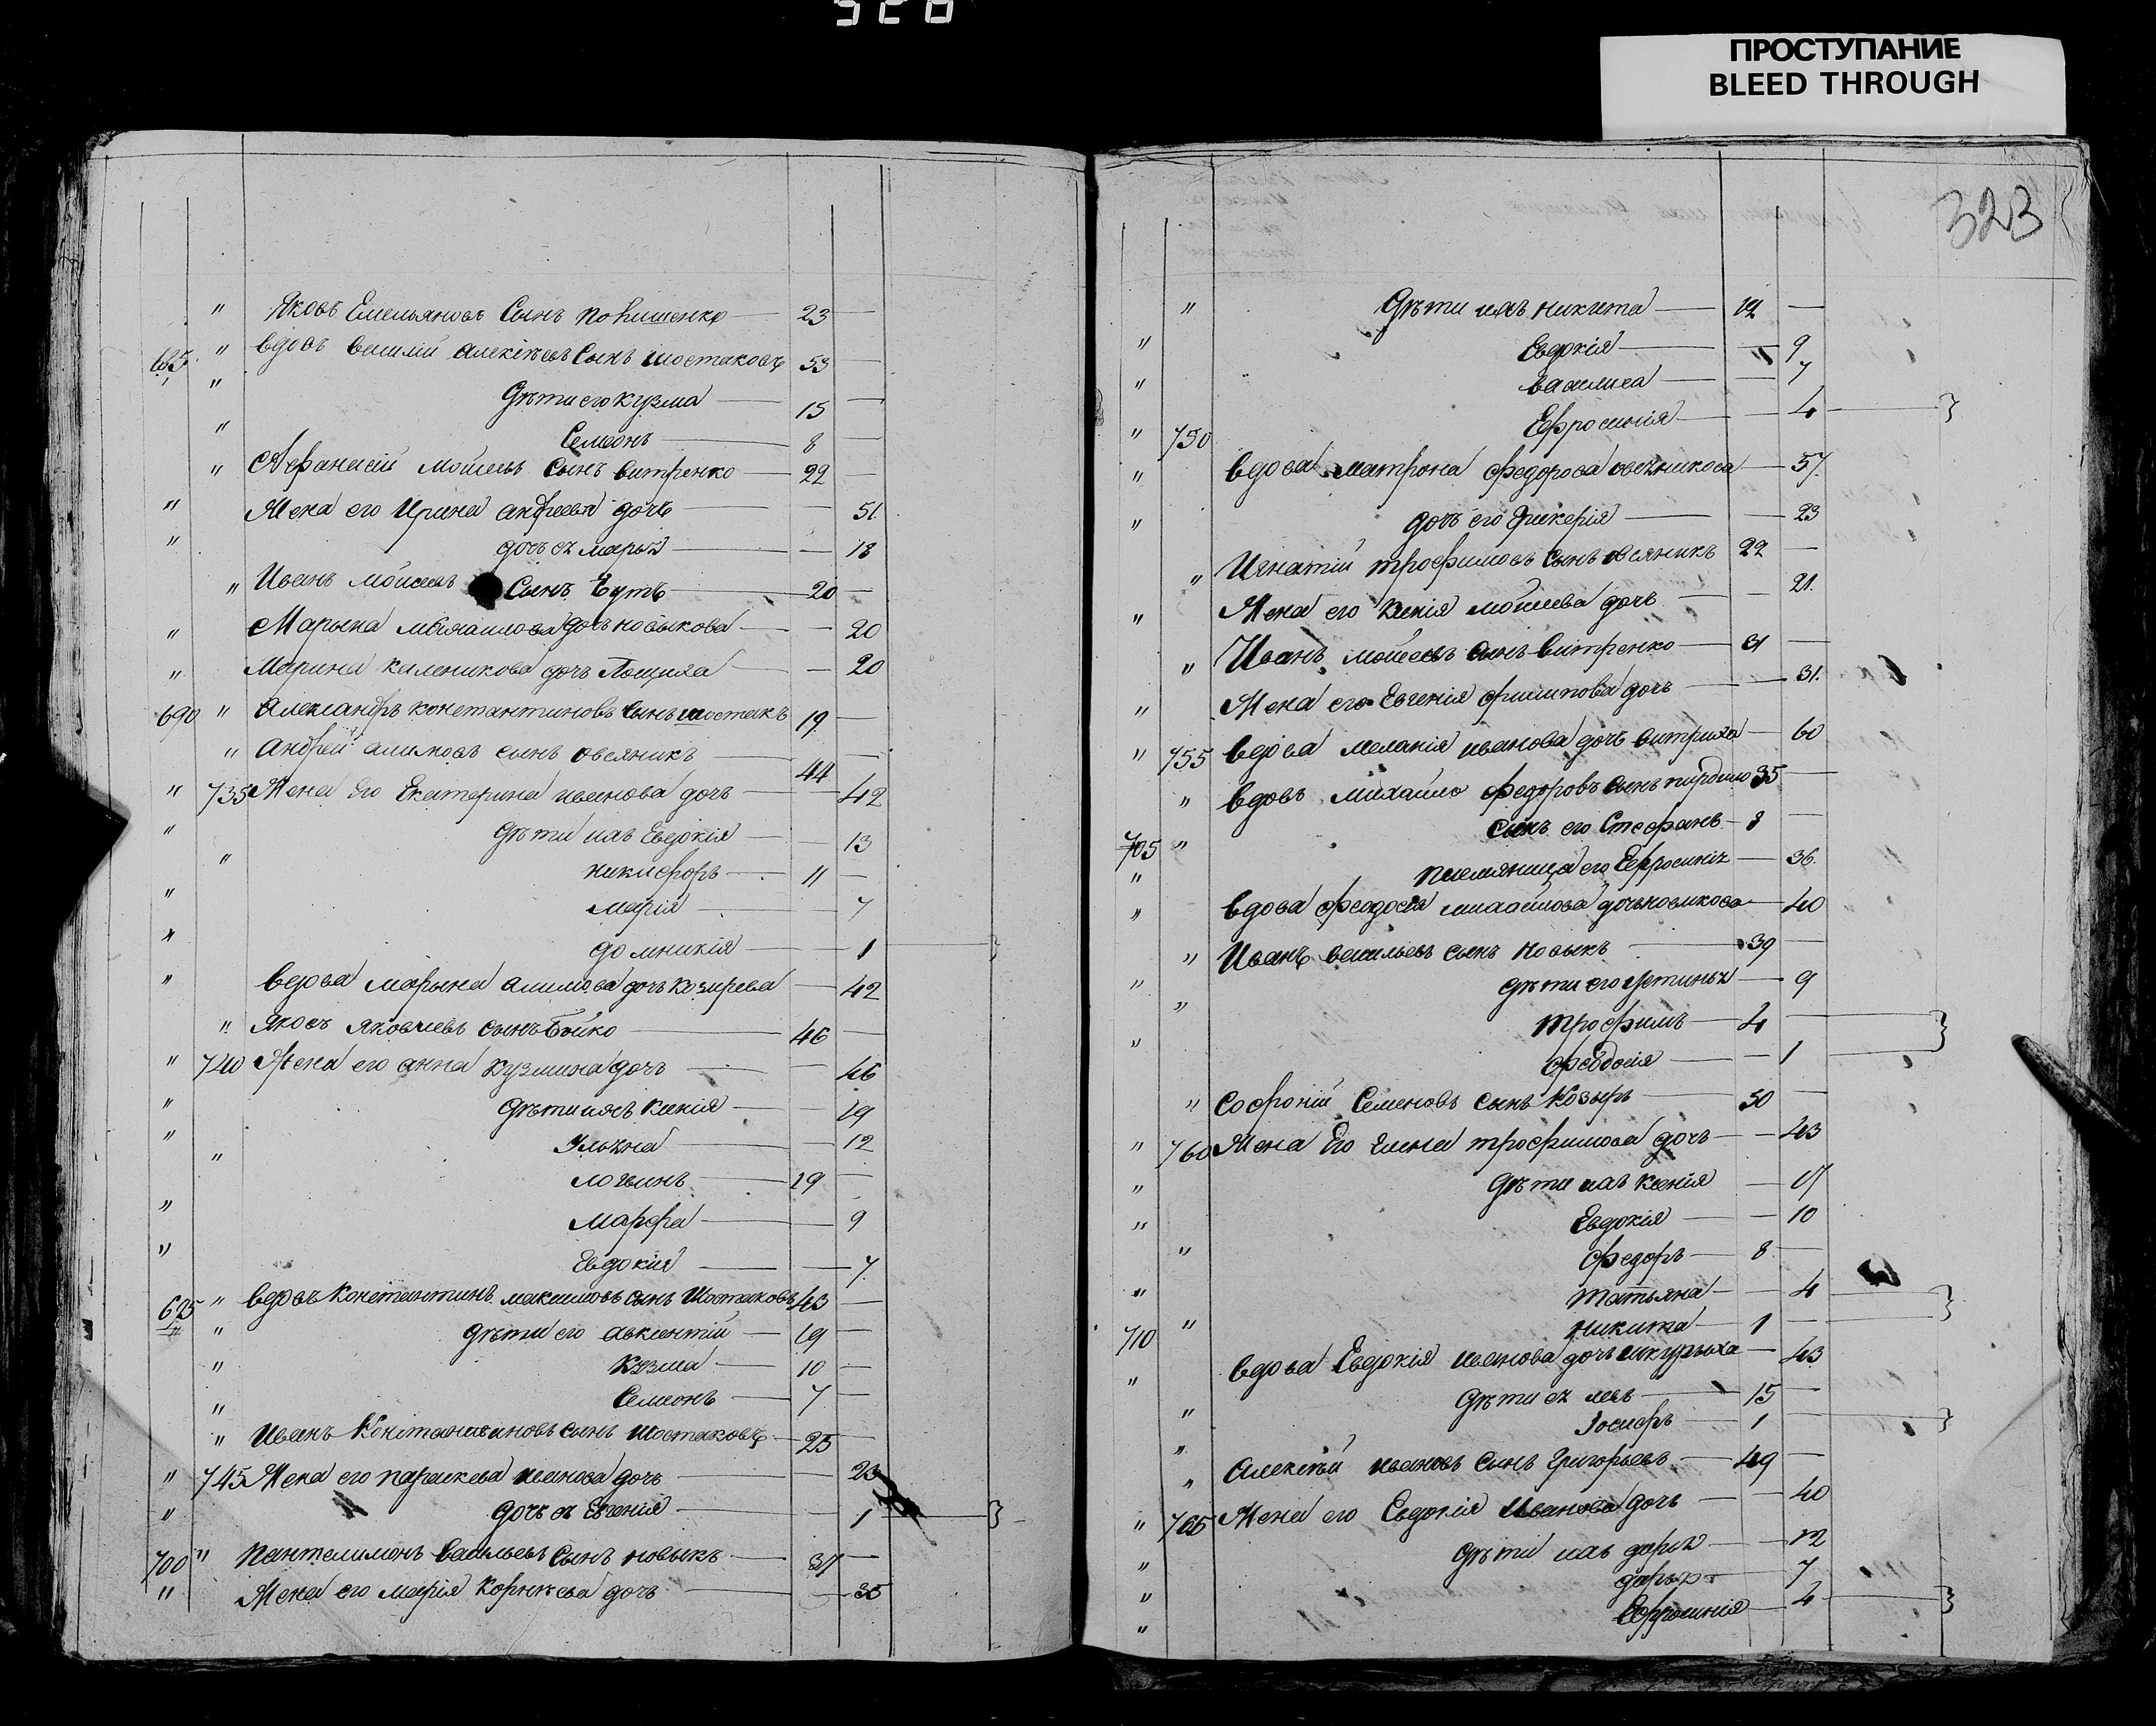 ПРОСТУПАНИЕ
BLEED THROUGH
" Яковъ Емельяновъ Сынъ 23 —
685 " вдовъ василій алексѣевъ Сынъ шостаковъ 53 —
" Дѣти его кузма 15 —
" Семионъ 8 —
" Афанасій мойсеевъ Сынъ витренко 22 —
" Жена его Ирина андреева дочь — 51
" дочь ея марья — 18
" Иванъ мойсеевъ Сынъ 20 —
" Марына михаилова дочь новыкова — 20
" Марина каленикова дочь — 20
690 " Александръ константиновъ Сынъ шостакъ 19 —
" Андрей алимовъ сынъ овсяникъ 44 —
" 735 Жена Его Екатерина иванова дочь — 42
" Дѣти ихъ Евдокія — 13
" никифоръ 11 —
" марія — 7
" домникія — 1
" вдова марына алимова дочь козирева — 42
" Яковъ яковлевъ сынъ Бойко 46 —
" 740 Жена его анна кузмина дочь — 46
" Дѣти ихъ ксенія — 19
" Ульяна — 12
" логвинъ 19 —
" Марфа — 9
" Евдокія — 7
695 " вдовъ константинъ максимовъ сынъ Шостаковъ 43 —
" дѣти его авксентій 19 —
" Кузма 10 —
" Семионъ 7 —
" Иванъ Константиновъ сынъ шостаковъ 25 —
" 745 Жена его параскева иванова дочь — 23
" дочь ея Евгенія — 1
700 " пантелимонъ васильевъ Сынъ новыкъ 37 —
" Жена его марія Корнѣева дочь — 35
323
" Дѣти ихъ никита 12 —
" Евдокія — 9
" василиса — 7
" 750 Ефросинія — 4
" вдова матрона федорова овсяникова — 57
" дочь его гликерія — 23
" Игнатій трофимовъ сынъ овсяникъ 22 —
" Жена его ксенія мойсеева дочь — 21
" Иванъ мойсеевъ сынъ витренко 31 —
" Жена его Евгенія филипова дочь — 31
" 755 вдова меланія иванова дочь витриха — 60
" вдовъ михайло федоровъ сынъ 35 —
705 " сынъ его Стефанъ 8 —
" племяница его Ефросинія — 36
" вдова феодосія михайлова дочь новикова — 40
" Иванъ васильевъ сынъ новыкъ 39 —
" дѣти его устинья — 9
" трофимъ 4 —
" феодосія — 1
" софроній Семеновъ сынъ Козырь 50 —
" 760 Жена Его Елена трофимова дочь — 43
" дѣти ихъ ксенія — 17
" Евдокія — 10
" федоръ 8 —
" татьяна — 4
710 " никита 1 —
" вдова Евдокія иванова дочь шкурыха — 43
" дѣти ея левъ 15 —
" Іосифъ 1 —
" алексѣй ивановъ сынъ Григорьевъ 49 —
" 765 Жена его Евдокія Иванова дочь — 40
" дѣти ихъ дарья — 12
" дарья — 7
" Ефросинія — 4